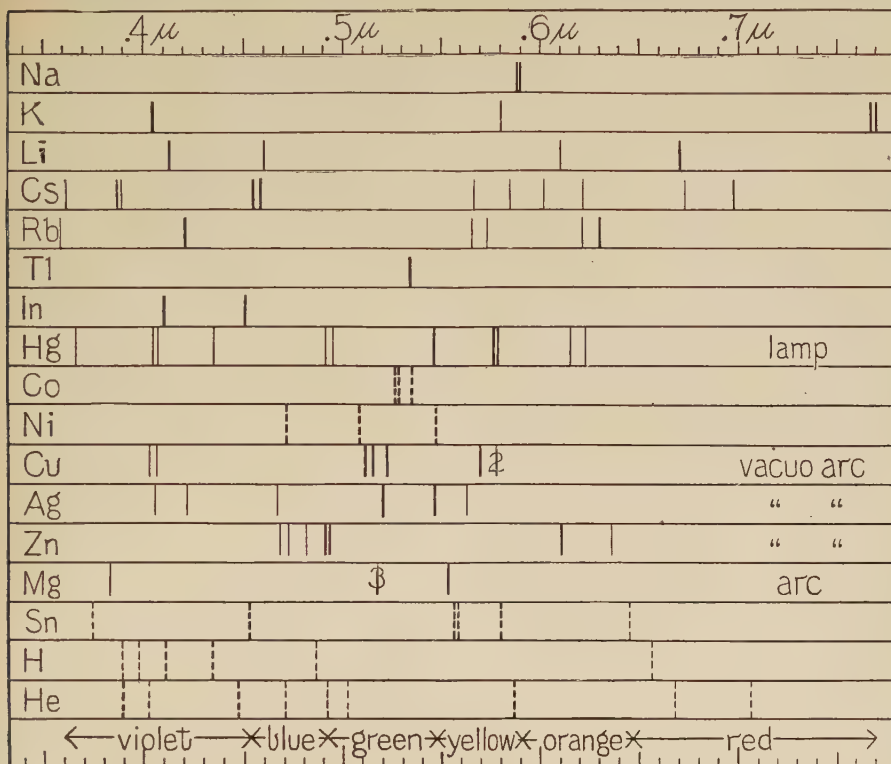 .4μ .5μ .6μ .7μ
Na
K
Li
Cs
Rb
Tl
In
Hg lamp
Co
Ni
Cu 2 vacuo arc
Ag “ “
Zn “ “
Mg 3 arc
Sn
H
He
violet blue green yellow orange red